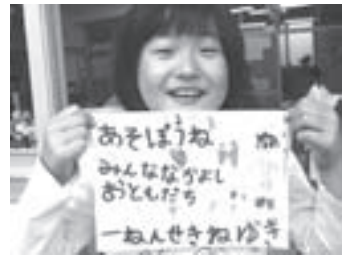 あそぼうね
みんなななかよし
おともだち
一ねんせきねゆき